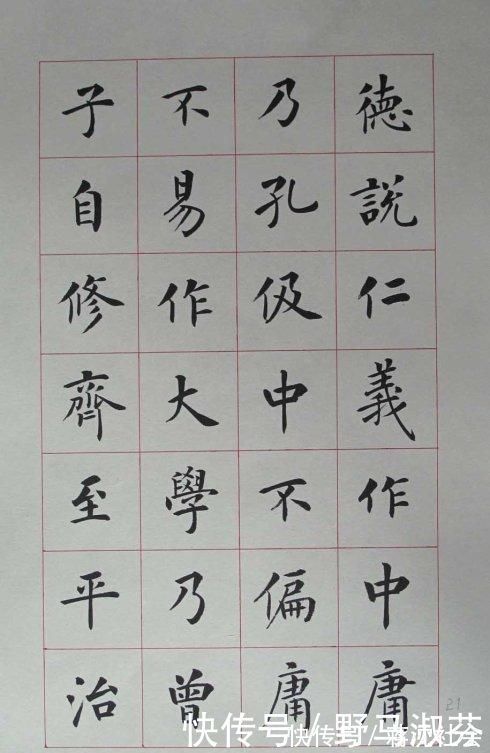 德說仁義作中庸
乃孔伋中不偏庸
不易作大學乃曾
子自修齊至平治
21
快传号/野马淑
快传号/